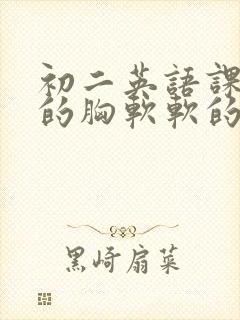 初二英語課
的胸軟軟的
黑崎扇菜